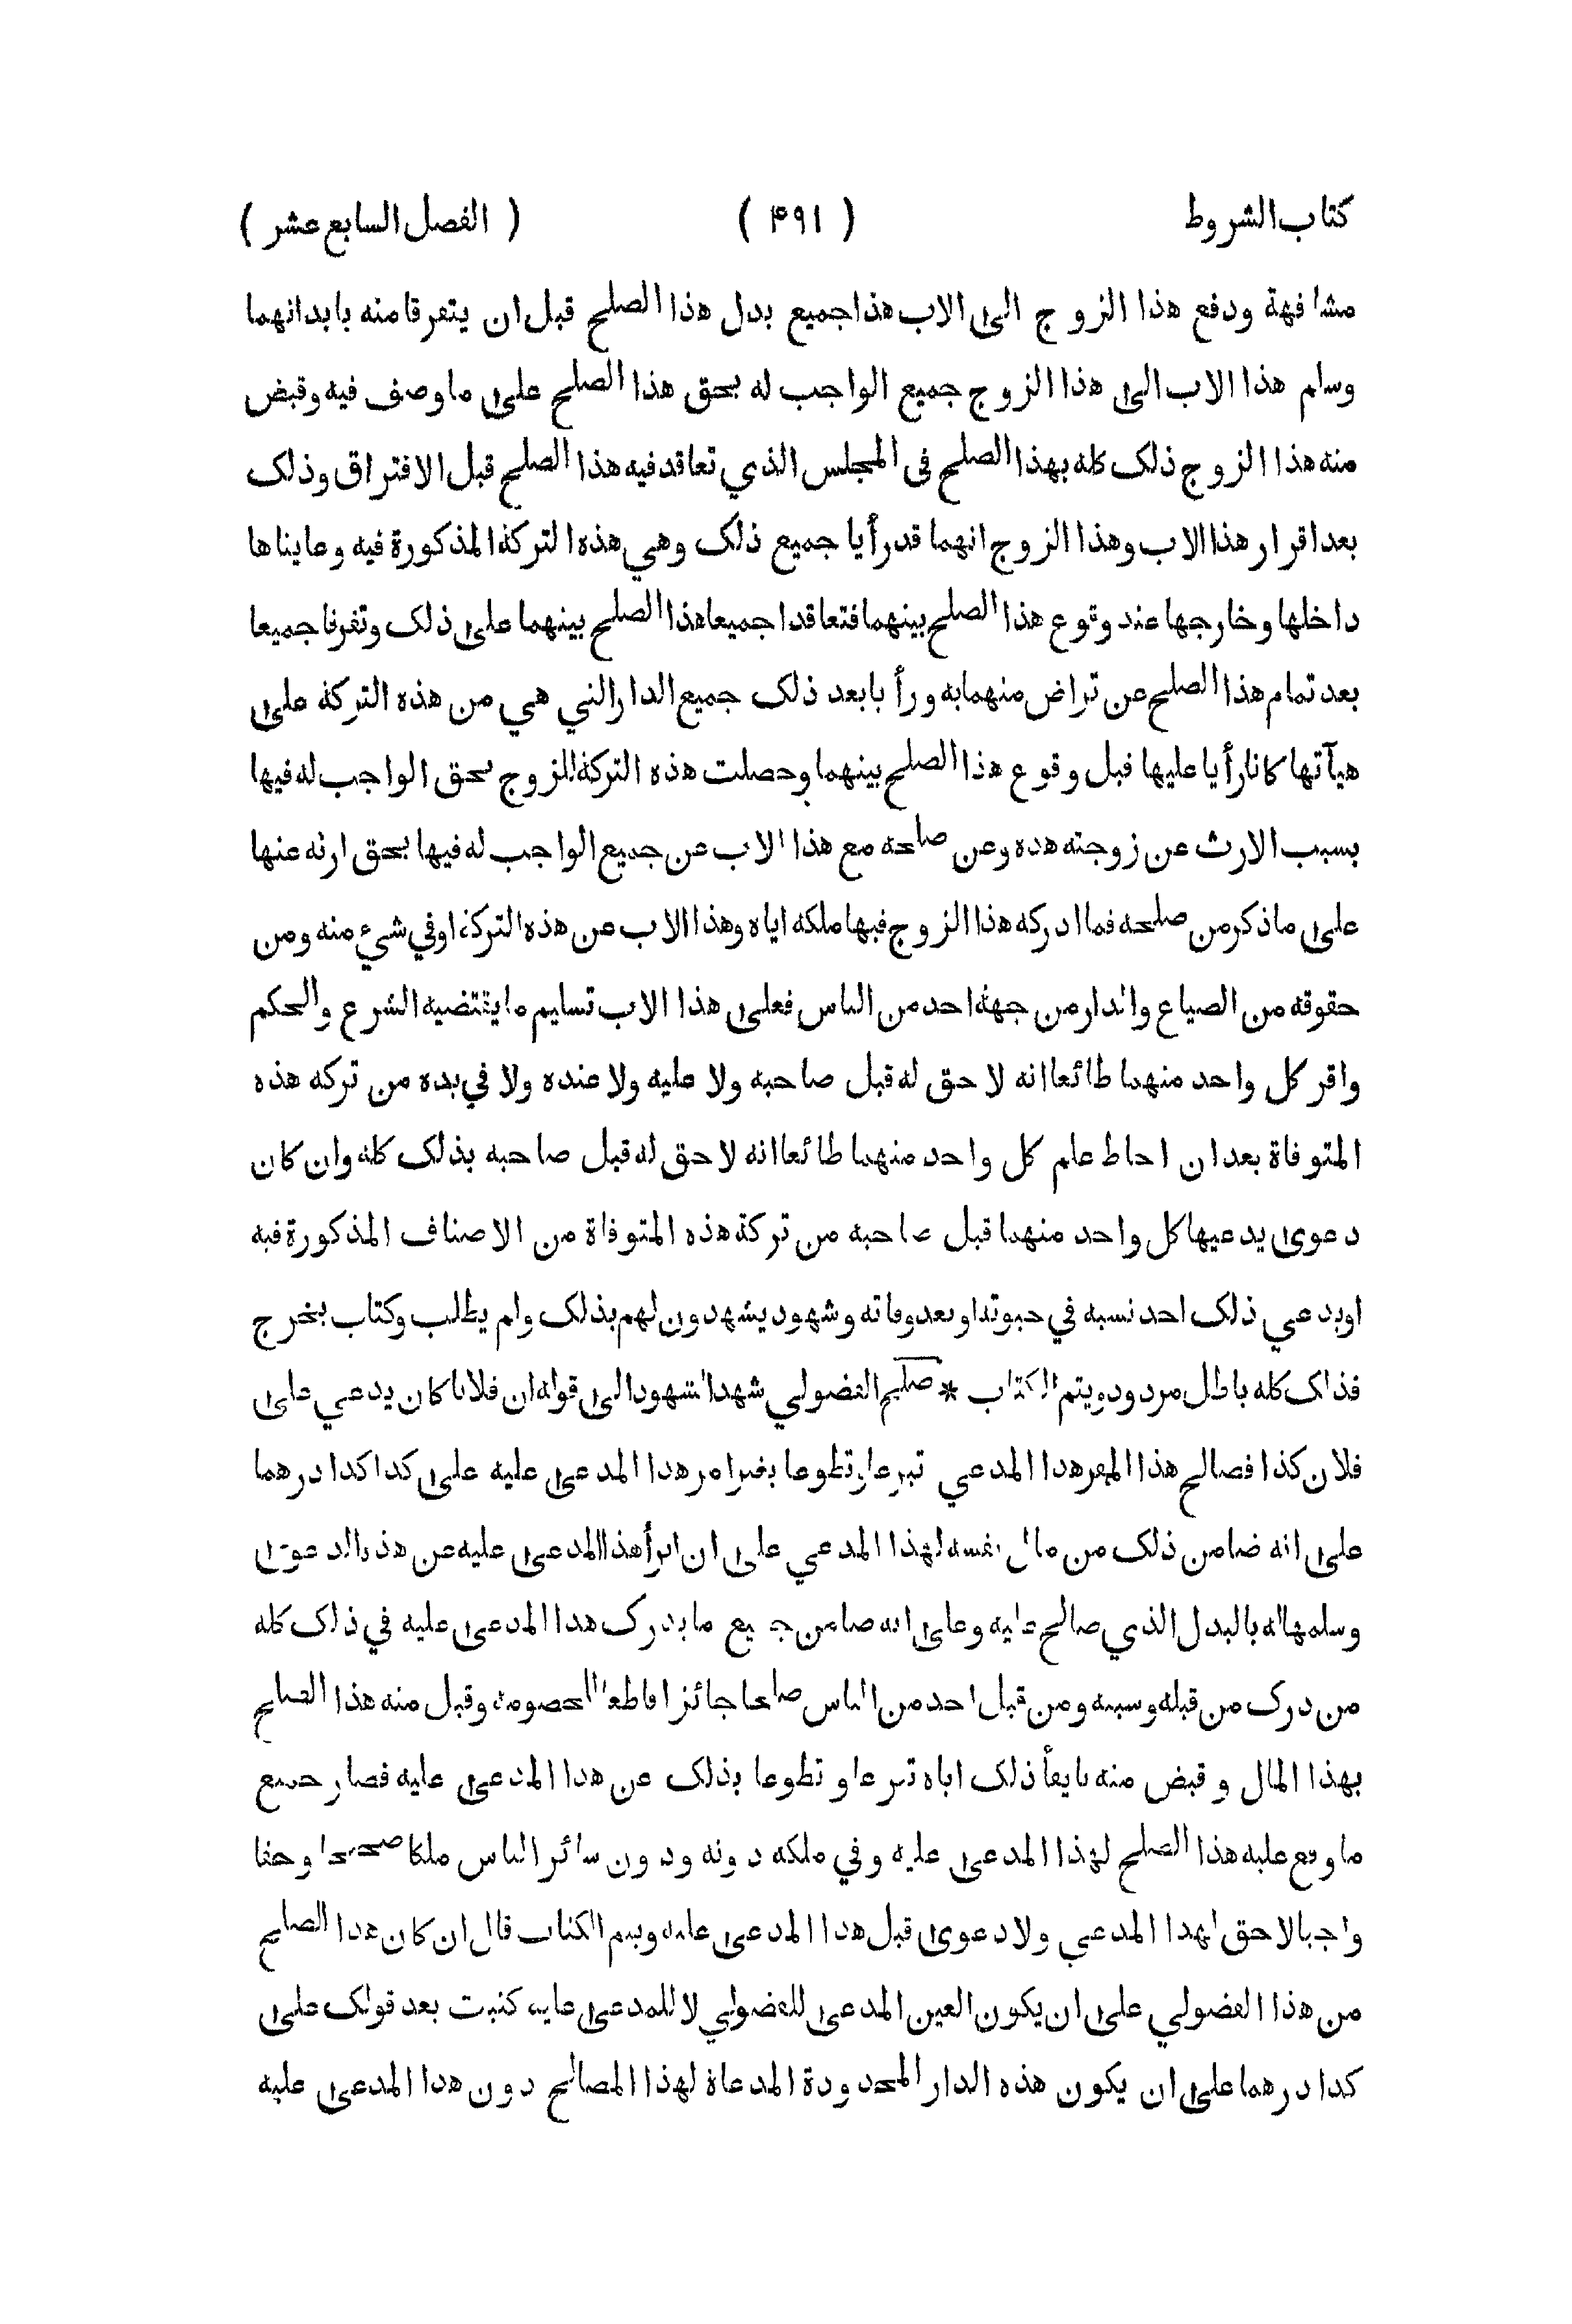 كتاب الشروط ( ۴۹۱ ) ( الفصل السابع عشر )
مشافهة ودفع هذا الزوج الى الاب هذا جميع بدل هذا الصلح قبل ان يتفرقا منه بابدانهما
وسلم هذا الاب الى هذا الزوج جميع الواجب له بحق هذا الصلح على ما وصف فيه وقبض
منه هذا الزوج ذلك كله بهذا الصلح فى المجلس الذي تعاقد فيه هذا الصلح قبل الافتراق وذلك
بعد اقرار هذا الاب وهذا الزوج انهما قد رأيا جميع ذلك وهي هذه التركة المذكورة فيه وعايناها
داخلها وخارجها عند وقوع هذا الصلح بينهما فتعاقدا جميعا هذا الصلح بينهما على ذلك وتفرقا جميعا
بعد تمام هذا الصلح عن تراض منهما به ورأيا بعد ذلك جميع الدار التي هي من هذه التركة على
هيآتها كانا رأيا عليها قبل وقوع هذا الصلح بينهما وحصلت هذه التركة للزوج بحق الواجب له فيها
بسبب الارث عن زوجته هذه وعن صلحه مع هذا الاب عن جميع الواجب له فيها بحق ارثه عنها
على ما ذكر من صلحه فما ادركه هذا الزوج فيها ملكه اياه وهذا الاب عن هذه التركة او في شيء منه ومن
حقوقه من الضياع والدار من جهة احد من الناس فعلى هذا الاب تسليم ما يقتضيه الشرع والحكم
واقر كل واحد منهما طائعا انه لا حق له قبل صاحبه ولا عليه ولا عنده ولا في يده من تركه هذه
المتوفاة بعد ان احاط علم كل واحد منهما طائعا انه لا حق له قبل صاحبه بذلك كله وان كان
دعوى يدعيها كل واحد منهما قبل صاحبه من تركة هذه المتوفاة من الاصناف المذكورة فيه
او يدعي ذلك احد نسبه في حيوته او بعد وفاته وشهود يشهدون لهم بذلك ولم يطلب وكتاب يخرج
فذلك كله باطل مردود ويتم الكتاب * صلح الفضولي شهد الشهود الى قوله ان فلانا كان يدعي على
فلان كذا فصالح هذا المقر هذا المدعي تبرعا وتطوعا بغير امر هذا المدعى عليه على كذا كذا درهما
على انه ضامن ذلك من مال نفسه لهذا المدعي على ان ابرأ هذا المدعى عليه عن هذه الدعوى
وسلمها له بالبدل الذي صالح عليه وعلى انه ضامن جميع ما يدرك هذا المدعى عليه في ذلك كله
من درك من قبله وسببه ومن قبل احد من الناس صلحا جائزا قاطعا للخصومة وقبل منه هذا الصلح
بهذا المال وقبض منه بايفأ ذلك اياه تبرعا و تطوعا بذلك عن هذا المدعى عليه فصار جميع
ما وقع عليه هذا الصلح لهذا المدعى عليه وفي ملكه دونه ودون سائر الناس ملكا صحيحا وحقا
واجبا لا حق لهذا المدعي ولا دعوى قبل هذا المدعى عليه ويتم الكتاب قال ان كان هذا الصلح
من هذا الفضولي على ان يكون العين المدعى للفضولي لا للمدعى عليه كتبت بعد قولك على
كذا درهما على ان يكون هذه الدار المحدودة المدعاة لهذا المصالح دون هذا المدعى عليه